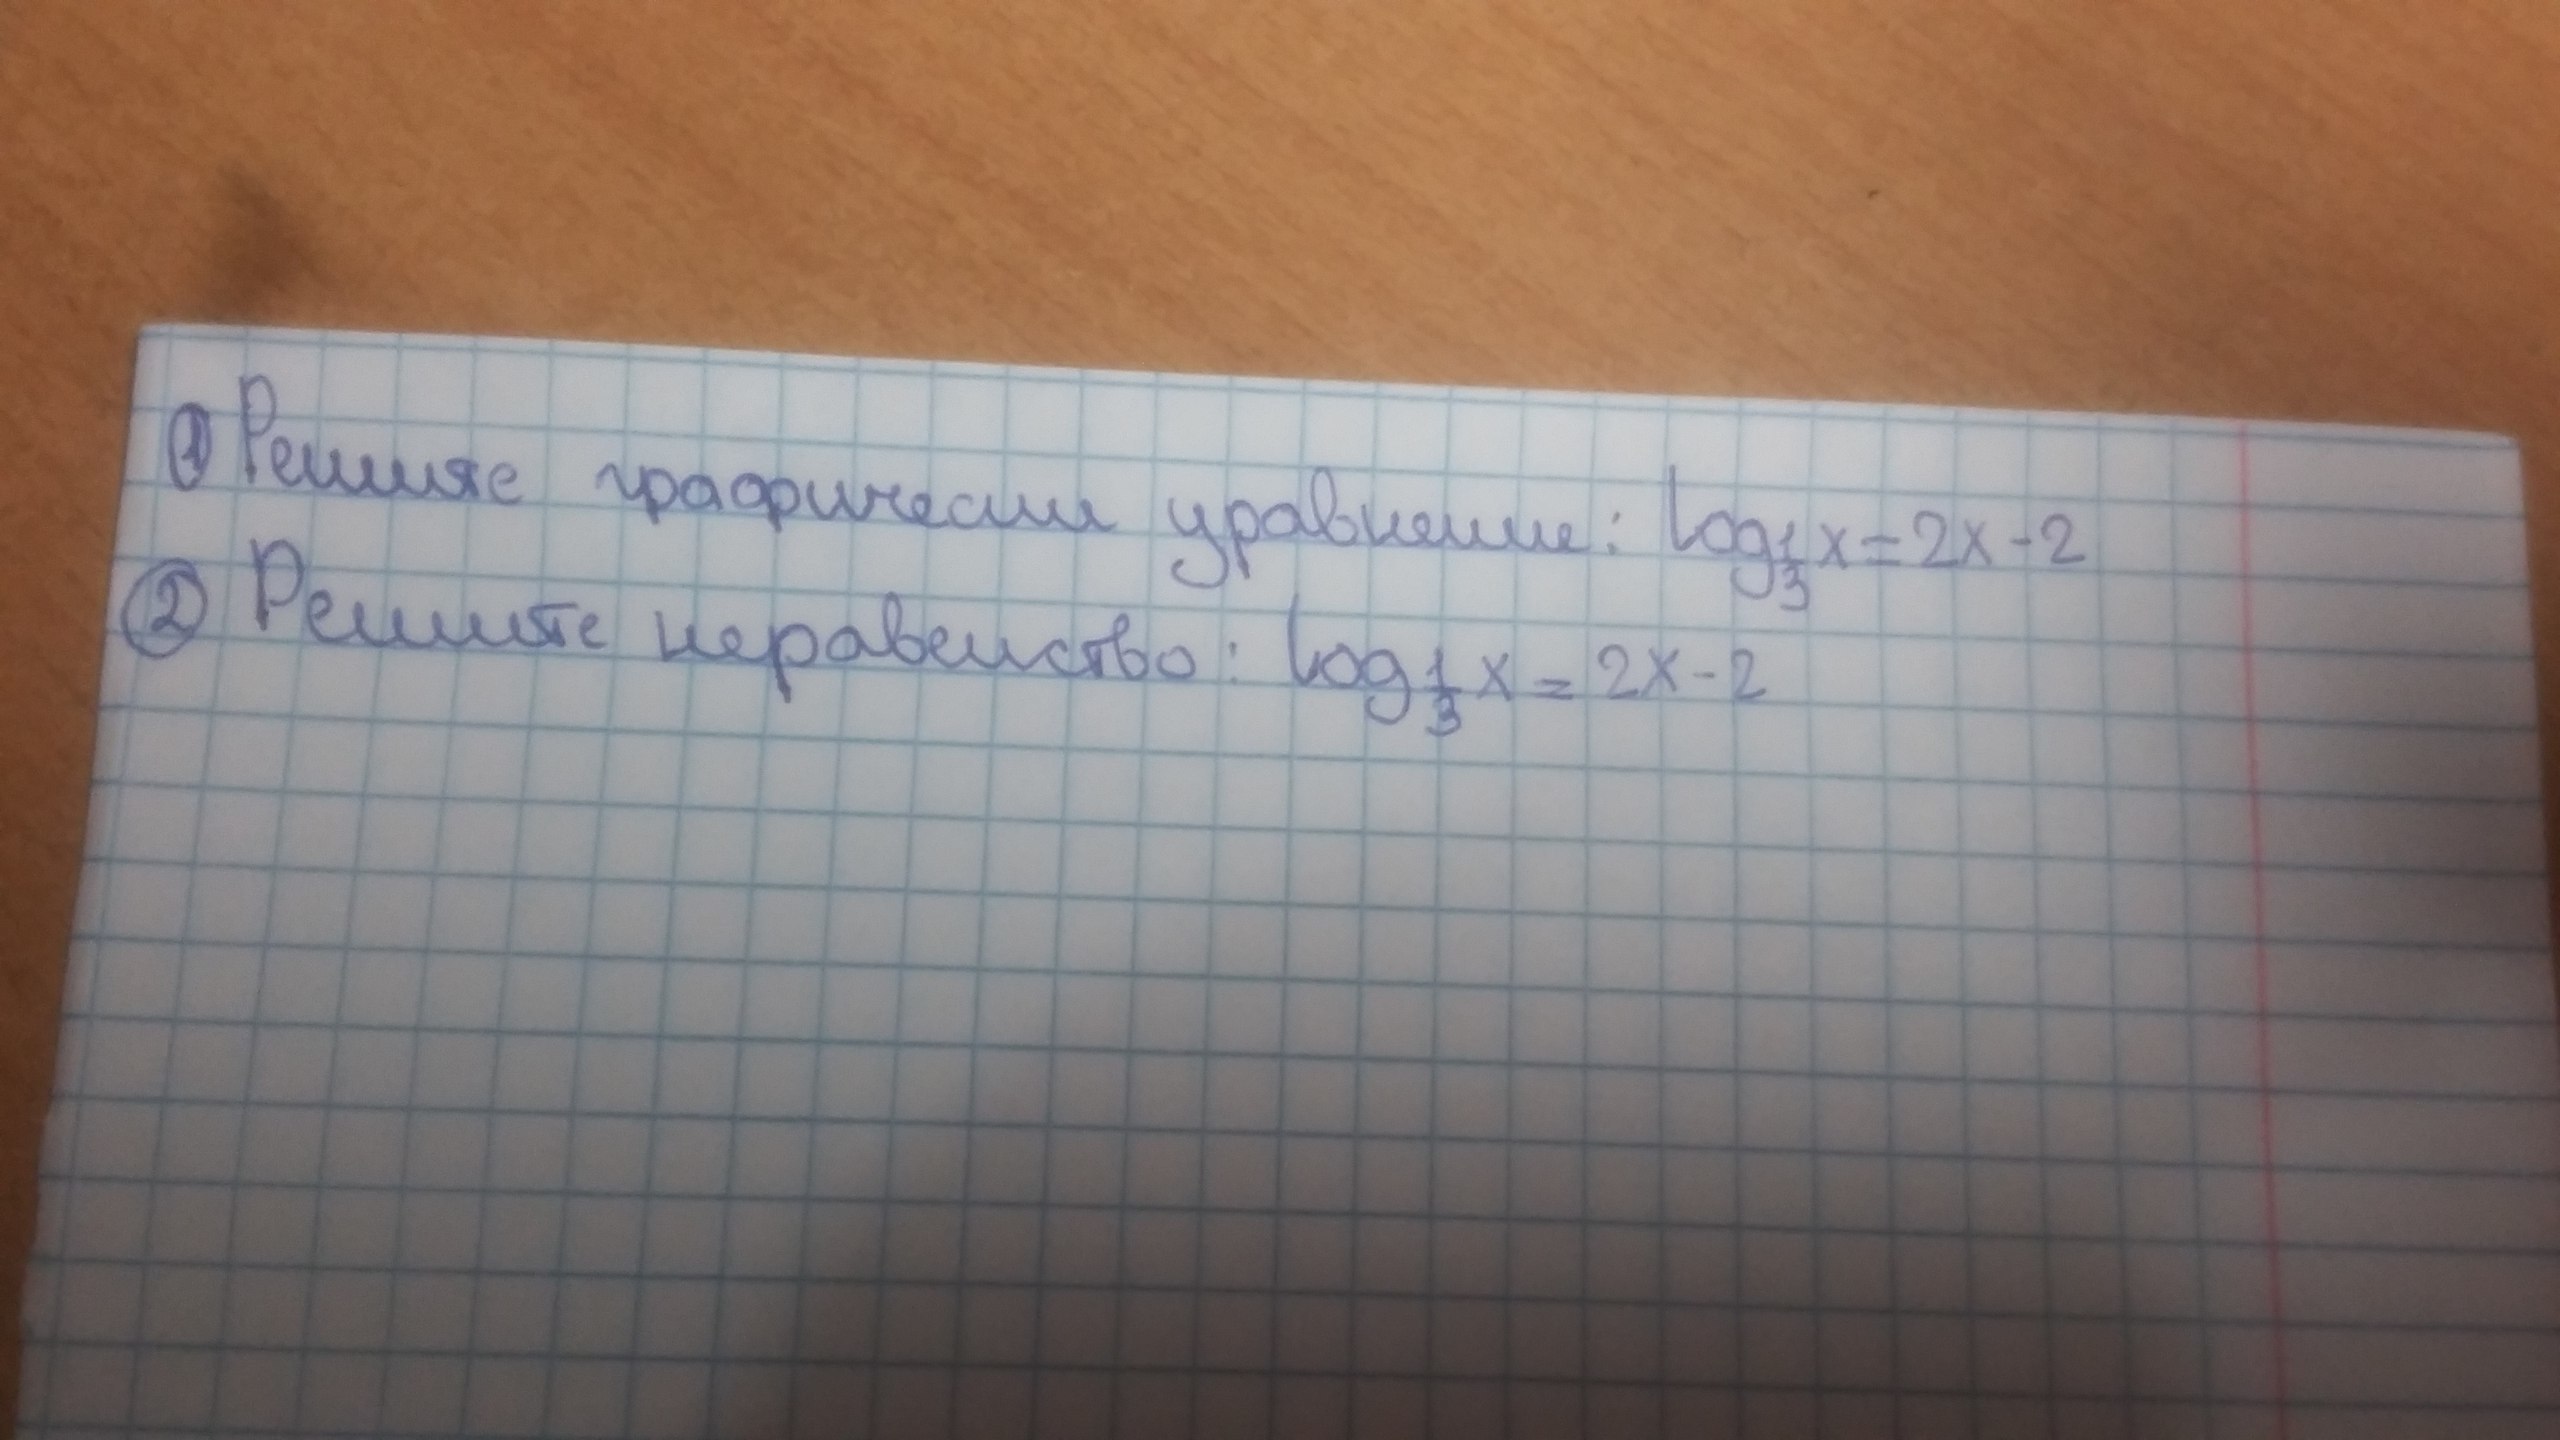 ① Решите графически уравнение: log 1/3 x = 2x - 2
② Решите неравенство: log 1/3 x = 2x - 2